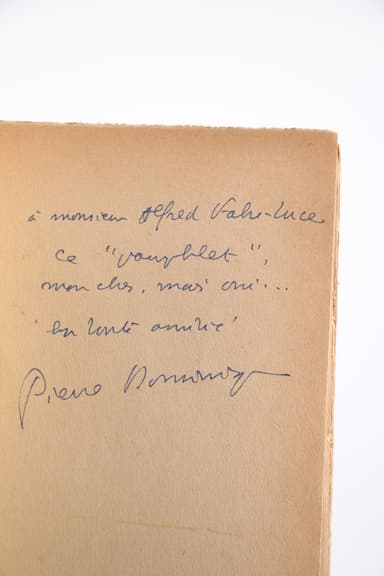 à monsieur Alfred Fabre-Luce
ce "pamphlet",
mon cher, mais oui...
en toute amitié
Pierre Dominique